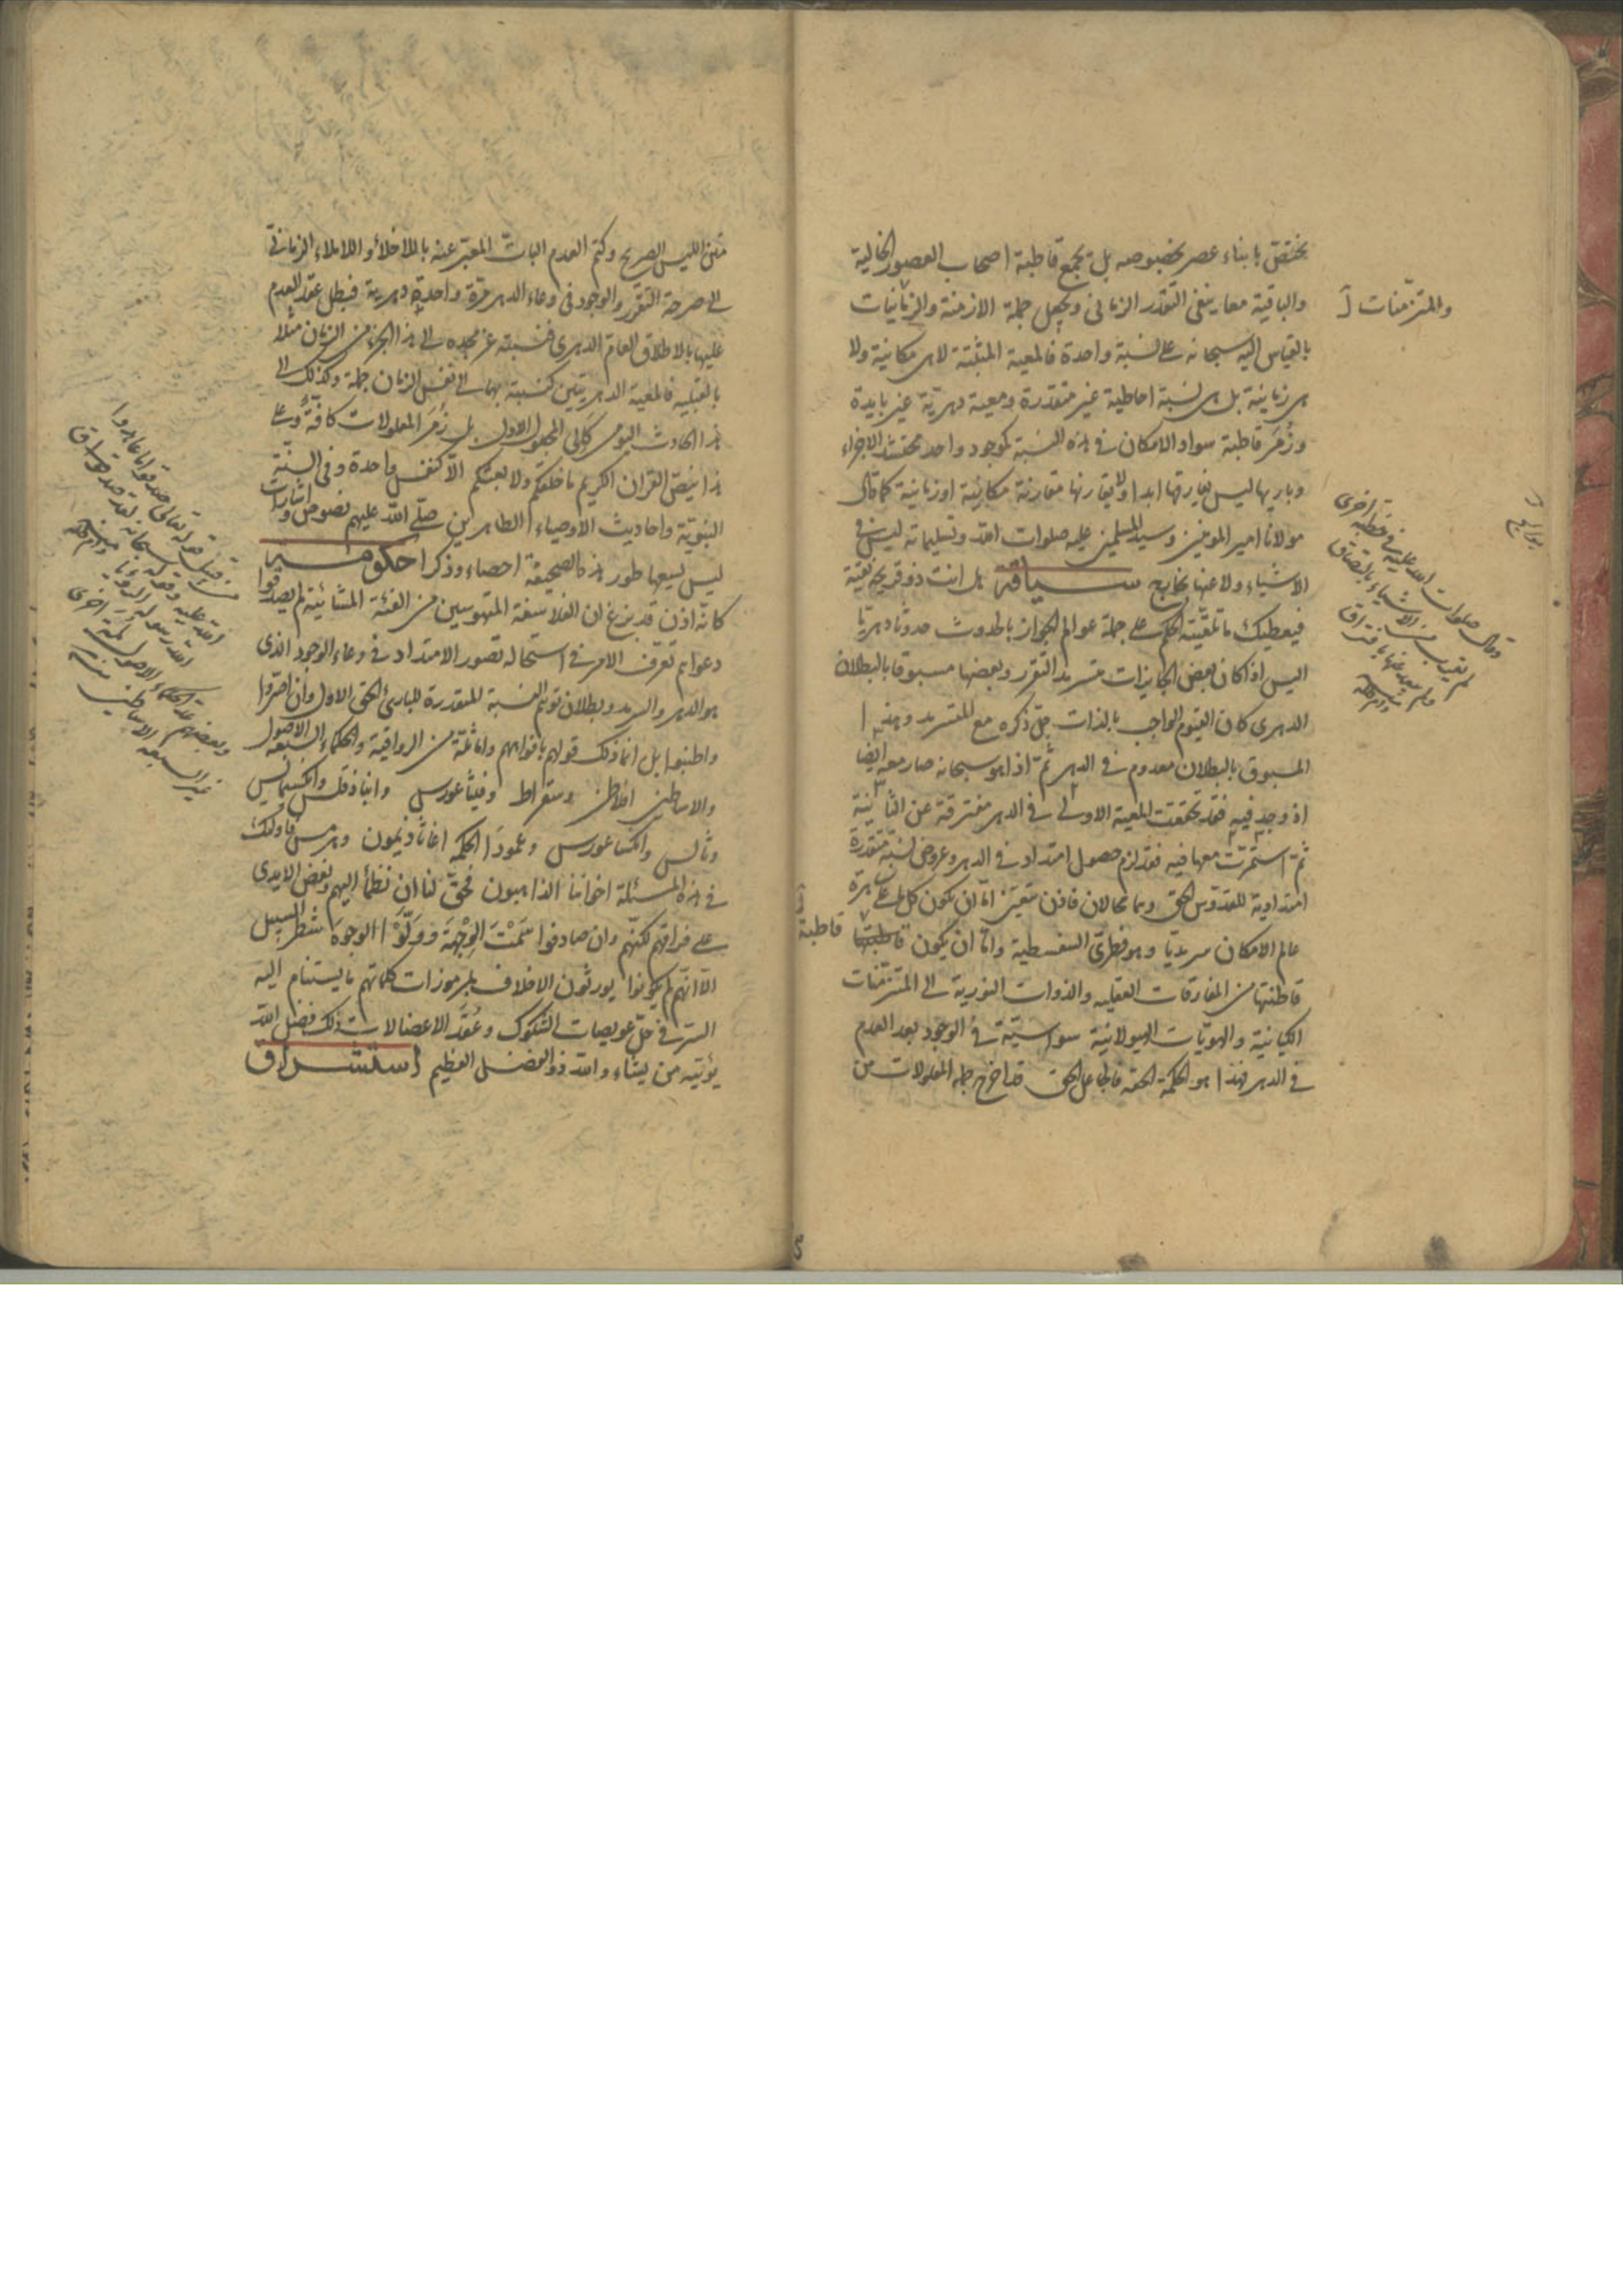 يختص بابناء عصر بخصوصه بل يجمع قاطبة اصحاب العصور الخالية
والباقية معا ينفى التقدر الزمانى ويجعل جملة الازمنة والزمانيات
والمتزمّنات
بالقياس اليه سبحانه على نسبة واحدة فالمعية المثبتة لا هى مكانية ولا
هى زمانية بل هى نسبة احاطية غير متقدرة ومعية دهرية غير بايدة
وزُمَر قاطبة سواد الامكان فى هذه النسبة كموجود واحد محتشد الاجزاء
وباريها ليس يفارقها ابدا ولا يقارنها مقارنة مكانية او زمانية كما قال
مولانا امير المومنين وسيد المسلمين عليه صلوات الله وتسليماته ليس فى
الاشياء ولا عنها بخارج سياقة هل انت ذو قريحة
فيعطيك ما تلقيته الحكم على جملة عوالم الجواز بالحدوث حدوثا دهريا
اليس اذا كان بعض الجايزات متسرمد التقرر وبعضها مسبوقا بالبطلان
الدهرى كان القيوم الواجب بالذات جلّ ذكره مع المتسرمد وهذا
المسبوق بالبطلان معدوم فى الدهر ثمّ اذا هو سبحانه صار معه ايضا
اذ وجد فيه فقد تحققت المعية الاولى فى الدهر مفترقة عن الثانية
ثمّ استمرّت معها فيه فقد لزم حصول امتداد فى الدهر وعروض نسبة متقدرة
امتدادية للقدّوس الحقّ وهما محالان فاذن تعيّن امّا ان يكون كل
عالم الامكان سرمديّا وهو فطرىّ السفسطية وامّا ان يكون قاطبة
قاطنتها من المفارقات العقلية والذوات النورية الى المتزمّنات
الكيانية والهويّات الهيولانية سواسيّة فى الوجود بعد العدم
فى الدهر فهذا هو الحكمة الحقة فالجاعل الحق قد اخرج جملة المعلولات من
وقال صلوات الله عليه فى خطبة اخرى
لم يقرب من الاشياء بالتصاق
ولم يبعد عنها بافتراق
متن الليس الصريح وكتم العدم البات المعبّر عنه باللاخلأ واللاملاء الزمانى
الى صرحة التقرر والوجود فى وعاء الدهر مرّة واحدة دهرية فبطل عقد العدم
عليها بالاطلاق العامّ الدهرى فنسبته عزّ مجده الى هذا الجزء من الزمان مثلا
بالقبلية فالمعية الدهريتين كنسبته بهما الى نفس الزمان جملة وكذلك الى
هذا الحادث اليومى كالى المجعول الاول بل زُمَر المعلولات كافّة وعلى
هذا ينصّ القران الكريم ما خلقكم ولا بعثكم الّا كنفس واحدة وفى السنّة
النبويّة واحاديث الاوصياء الطاهرين صلّى الله عليهم نصوص واشارات
ليس ليسعها طور هذه الصحيفة احصاء وذكرا
كانّه اذن قد بزغ ان الفلاسفة المتهوسين من الفئة المشائية لم يصدقوا
دعواهم تعرّف الامر فى استحالة تصور الامتداد فى وعاء الوجود الذى
هو الدهر والسرمد وبطلان توهم النسبة المتقدرة للبارئ الحق الاول وان اصرّوا
واطنبوا بل انما ذلك قولهم بافواههم واما ثلّة من الرواقية والحكماء السبعة الاصول
والاساطين افلاطن وسقراط وفيثاغورس وانباذقلس وانكسيمانس
وثالس وانكساغورس وعمودا الحكمة اغاثاذيمون وهرمس فاولئك
فى هذه المسئلة اخواننا الذاهبون فحقّ لنا ان نظمأ اليهم ونعض الايدى
على فراقهم لكنّهم وان صادفوا سَمْتَ الوِجْهَة ووَلَّوْا الوجوه شطر السبيل
الّا انّهم لم يكونوا يورثون الاخلاف بمرموزات كلماتهم ما يستنام اليه
السرّ فى حلّ عويصات الشكوك وعُقَد الاعضالات ذلك فضل الله
يؤتيه من يشاء والله ذو الفضل العظيم استشراق